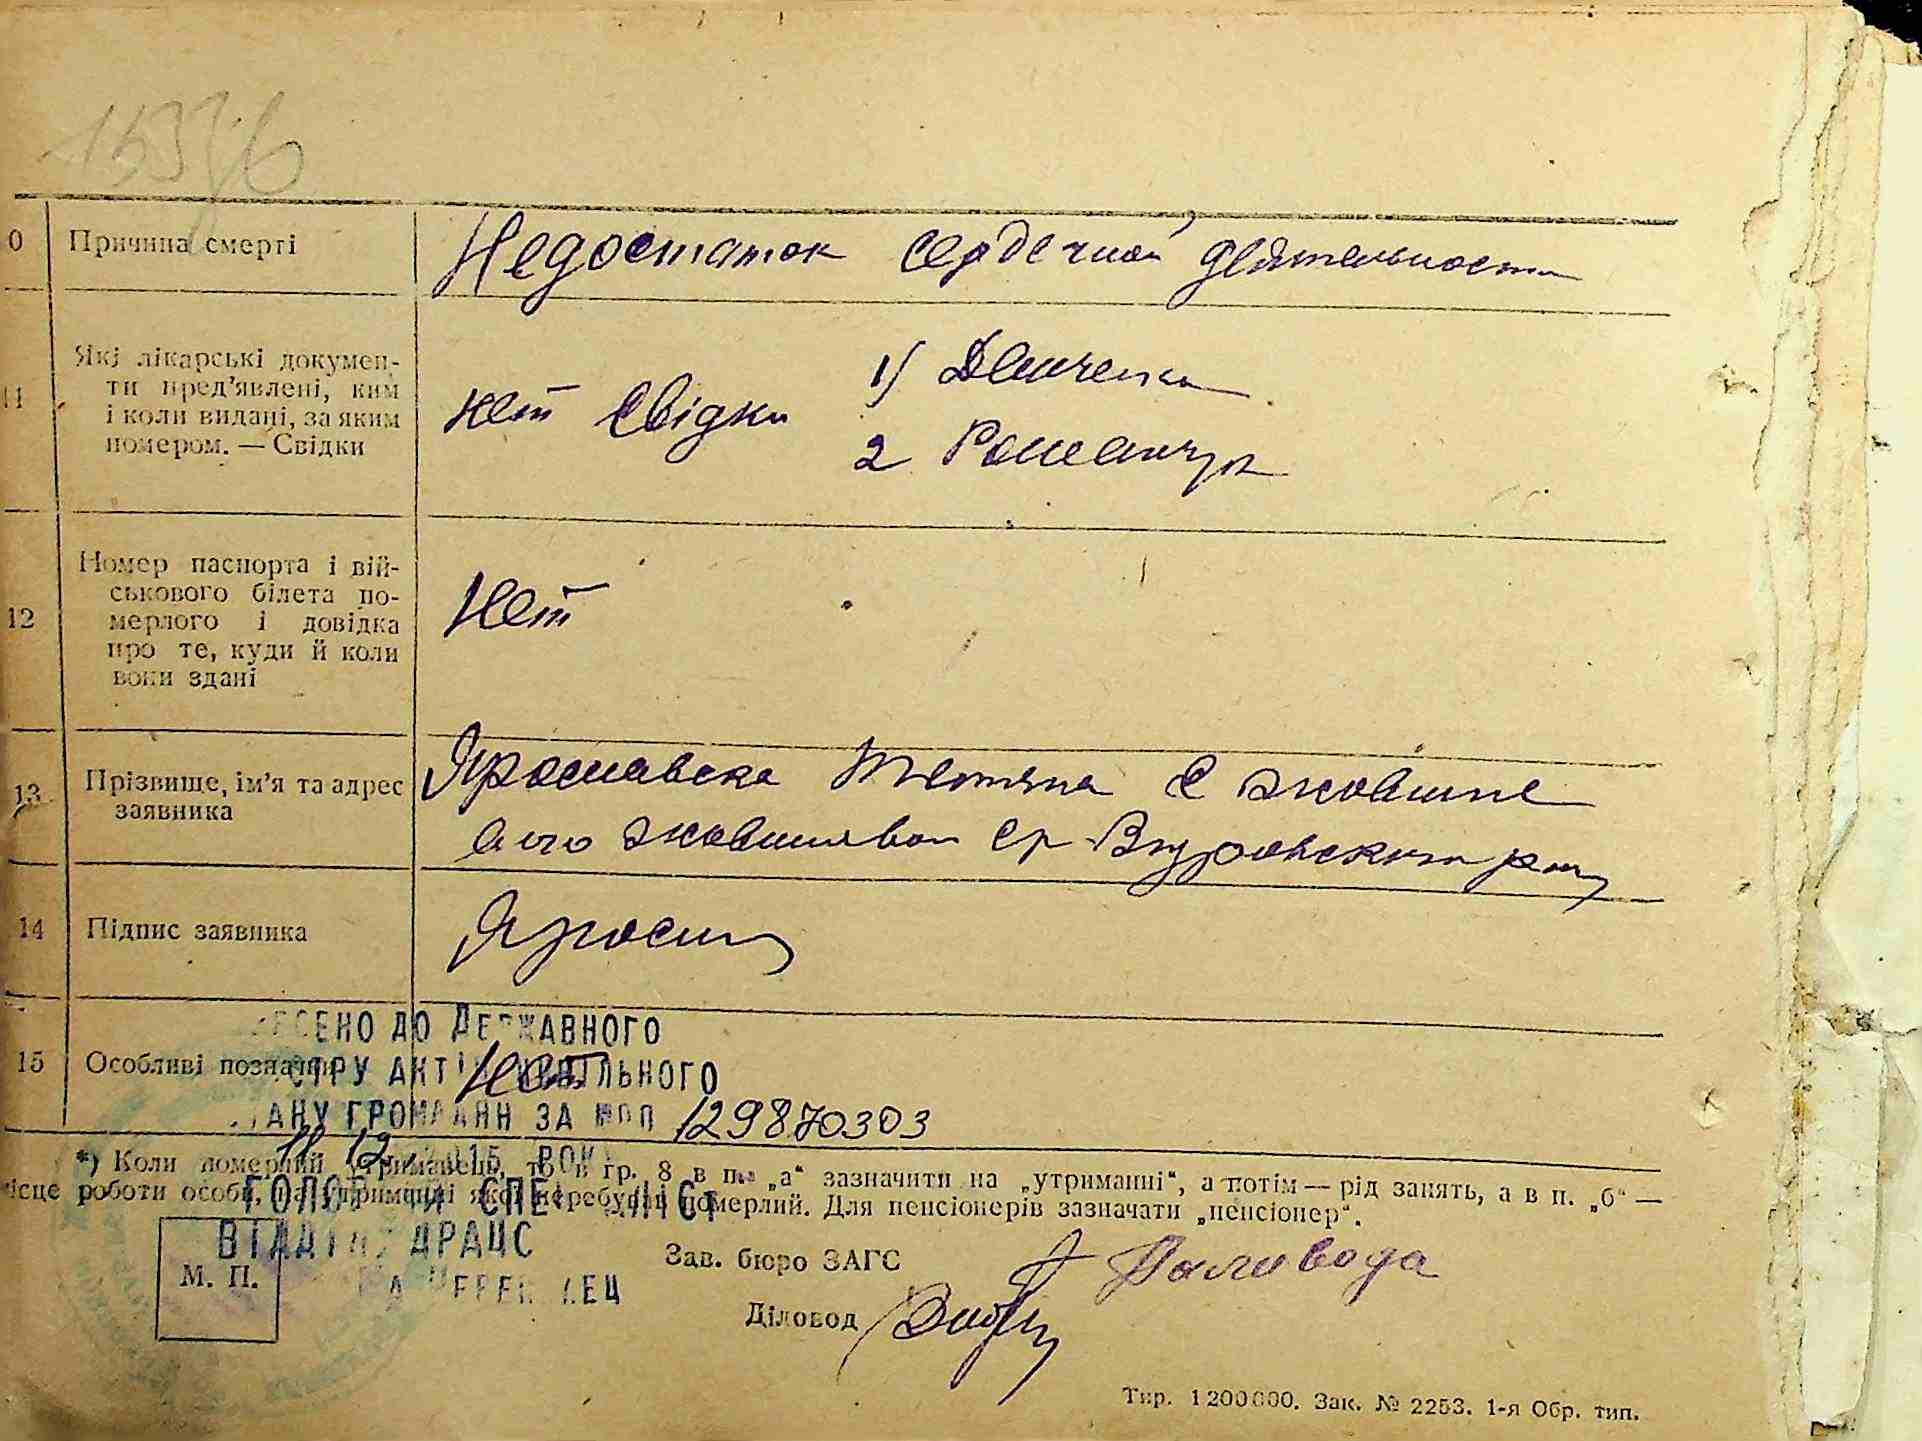 0 Причина смерті Недостаток сердечной деятельности
11 Які лікарські докумен-
ти пред’явлені, ким
і коли видані, за яким
номером. — Свідки
нет Свідки 1) Демченко
2 Романчук
12 Номер паспорта і вій-
ськового білета по-
мерлого і довідка
про те, куди й коли
вони здані
Нет
13 Прізвище, ім’я та адрес
заявника
Ярославска Тетяна
14 Підпис заявника
15 Особливі познач
Нет
ЕСЕНО ДО ДЕРЖАВНОГО
СТРУ АКТ ЦИВІЛЬНОГО
ТАНУ ГРОМАДЯН ЗА № 129870303
11 12 2015 РОКУ
*) Коли померлий утриманець, то в гр. 8 в п. „а“ зазначити на „утриманні“, а потім — рід занять, а в п. „б“ —
ісце роботи особи, на утриманні якої перебував померлий. Для пенсіонерів зазначати „пенсіонер“.
ГОЛОВНИЙ СПЕЦІАЛІСТ
ВІДДІЛУ ДРАЦС
М. П.
Зав. бюро ЗАГС Паливода
Діловод
Тир. 1200000. Зак. № 2253. 1-я Обр. тип.